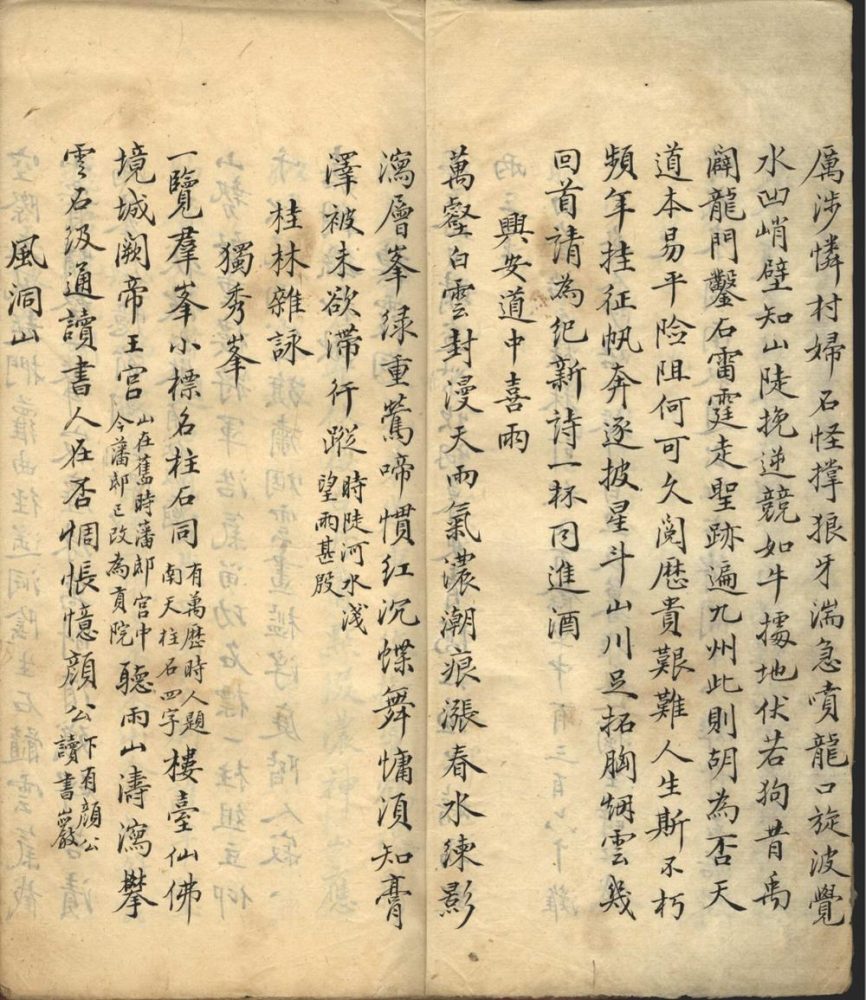 厲涉憐村婦石怪撐狼牙湍急噴龍口旋波覺
水凹峭壁知山陡挽逆競如牛擡地伏若狗昔禹
闢龍門鑿石雷霆走聖跡遍九州此則胡為否天
道本易平險阻何可久閱歷貴艱難人生斯不朽
頻年挂征帆奔逐披星斗山川足拓胸烟雲幾
回首請為紀新詩一杯同進酒
興安道中喜雨
萬壑白雲封漫天雨氣濃潮痕漲春水練影
瀉層峯綠重鶯啼慣紅沉蝶舞慵須知膏
澤被未欲滯行蹤時陡河水淺
望雨甚殷
桂林雜詠
獨秀峯
一覽羣峯小標名柱石同有萬歷時人題
南天柱石四字樓臺仙佛
境城闕帝王宮山在舊時藩邸宮中
今藩邸已改為貢院聽雨山濤瀉攀
雲石級通讀書人在否惆悵憶顏公下有顏公
讀書巖
風洞山